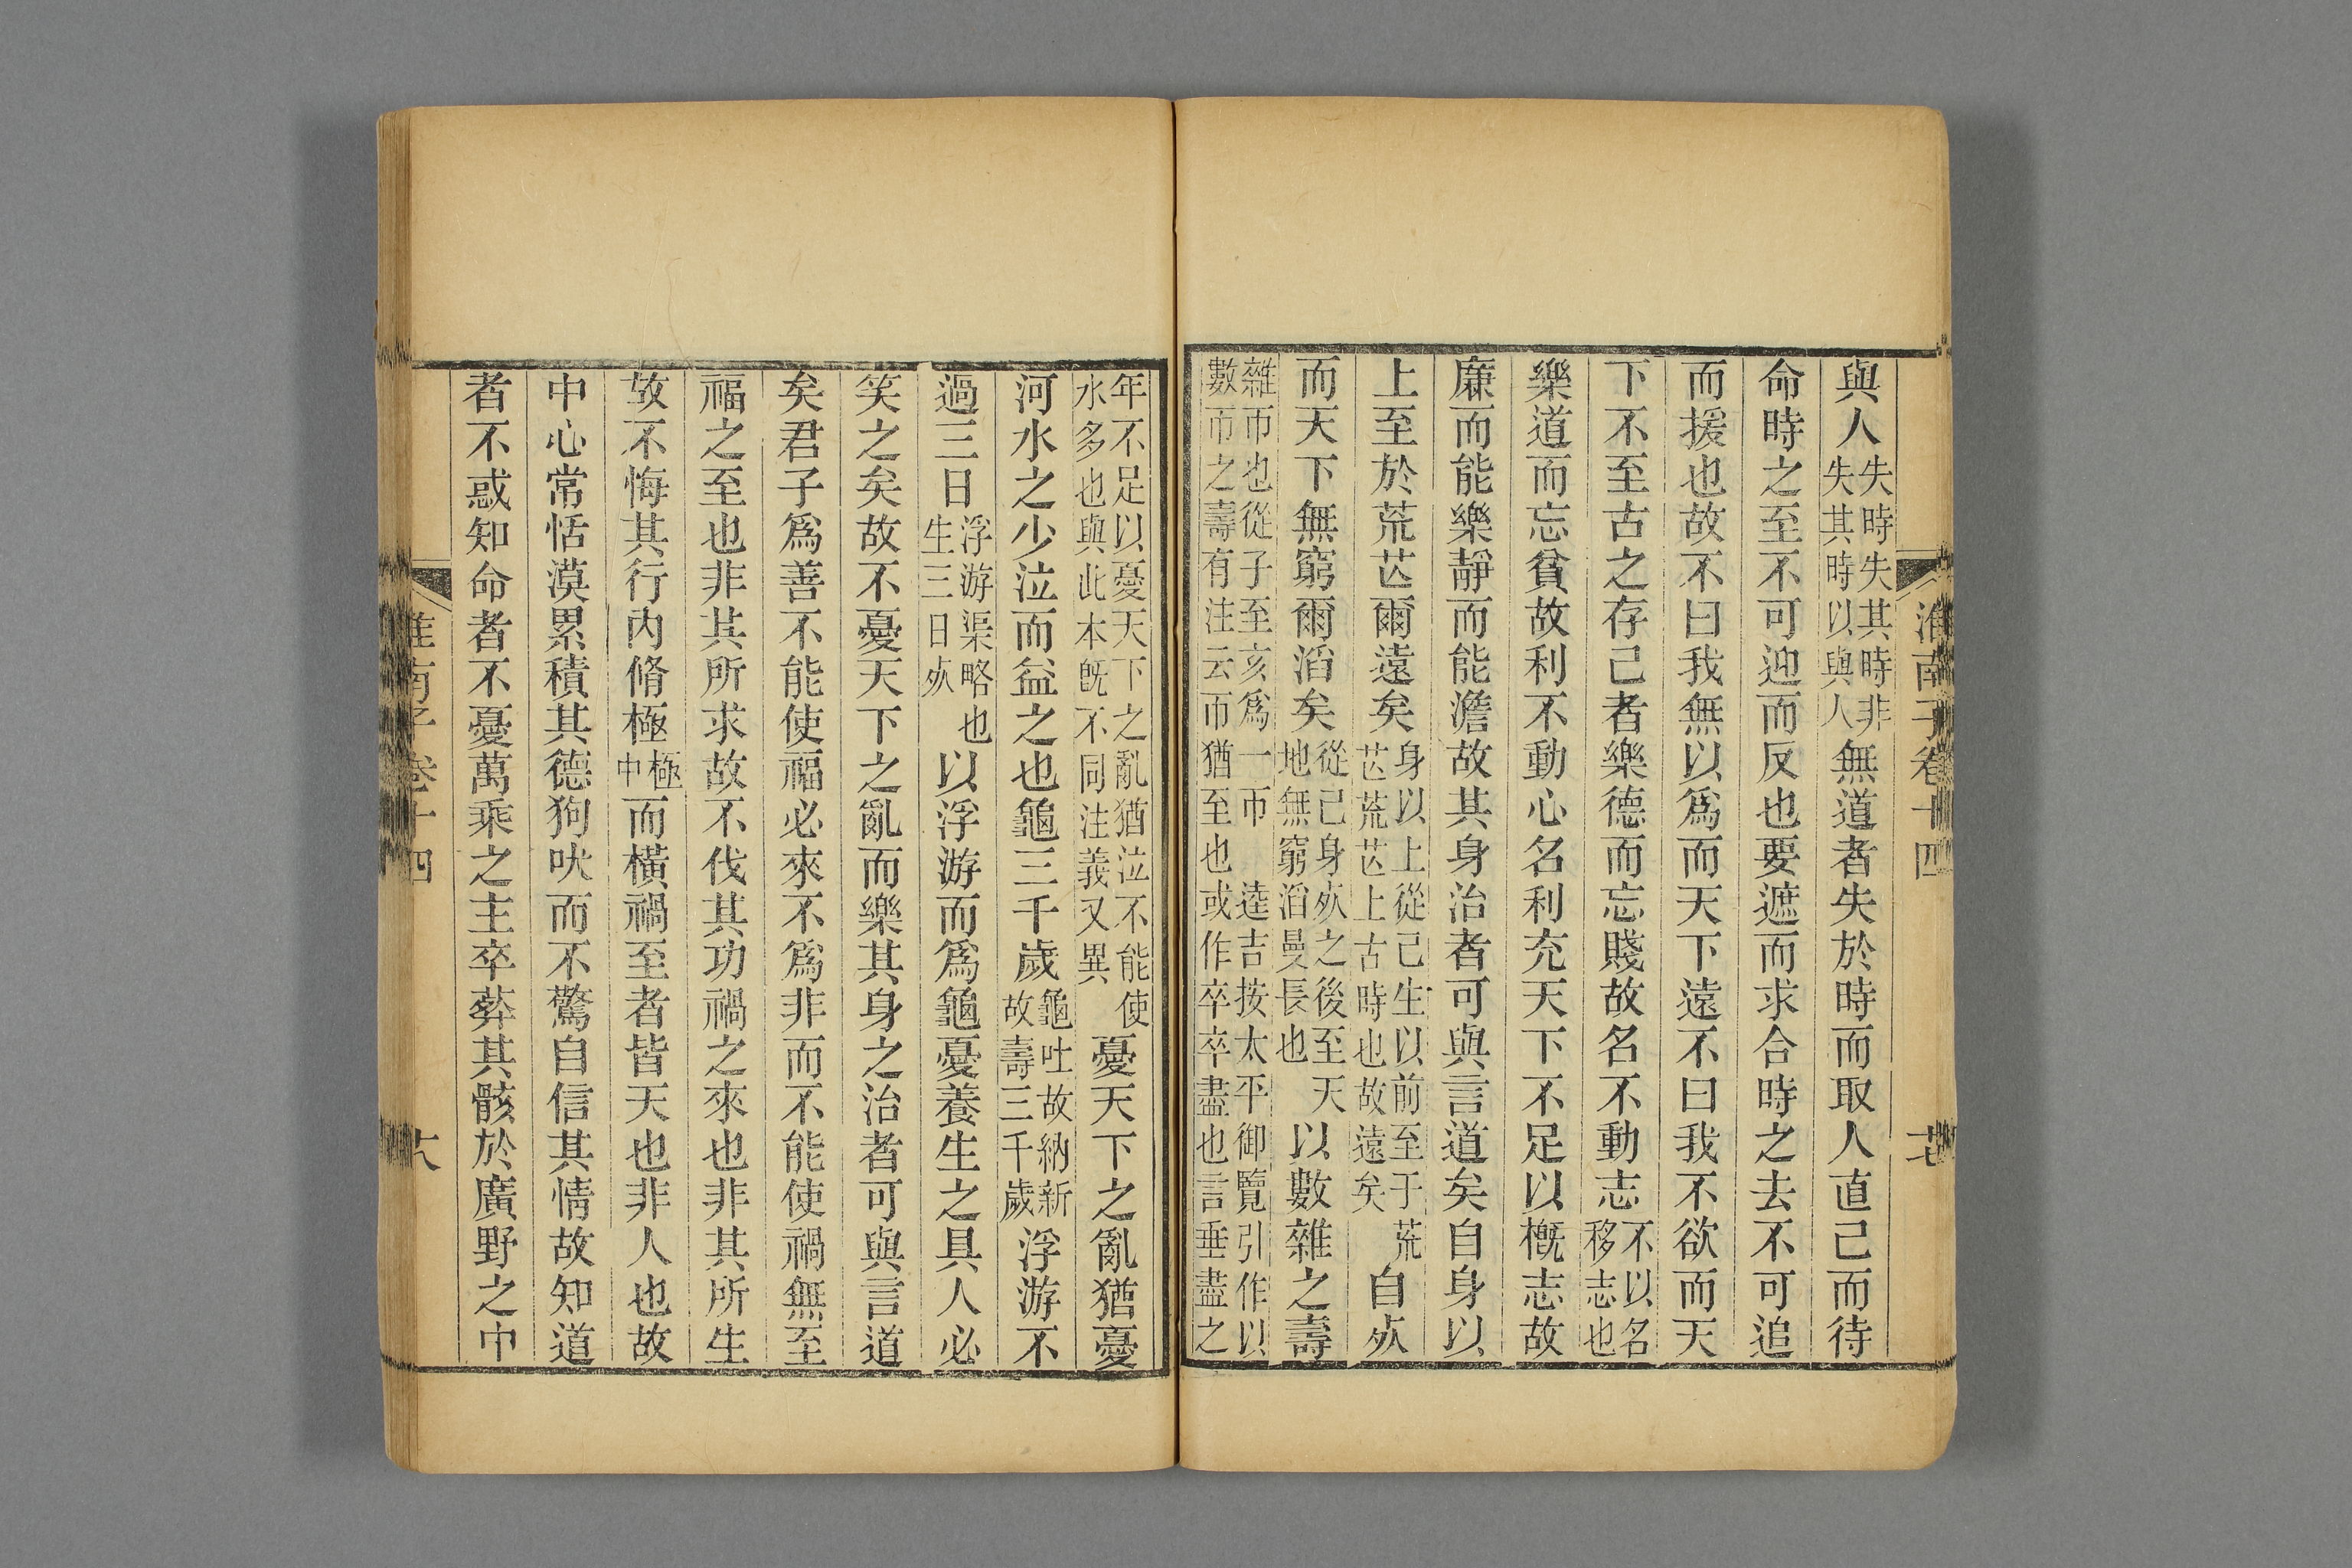 淮南子卷十四
十七
與人失時失其時非失其時以與人無道者失於時而取人直己而待
命時之至不可迎而反也要遮而求合時之去不可追
而援也故不曰我無以爲而天下遠不曰我不欲而天
下不至古之存己者樂德而忘賤故名不動志不以名移志也
樂道而忘貧故利不動心名利充天下不足以槪志故
廉而能樂靜而能澹故其身治者可與言道矣自身以
上至於荒芒爾遠矣身以上從己生以前至于荒芒荒芒上古時也故遠矣自㱙
而天下無窮爾滔矣從己身㱙之後至天地無窮滔曼長也以數雜之壽
雜帀也從子至亥爲一帀 逵吉按太平御覽引作以
數帀之壽有注云帀猶至也或作卒卒盡也言垂盡之
年不足以憂天下之亂猶泣不能使
水多也與此本旣不同注義又異憂天下之亂猶憂
河水之少泣而益之也龜三千歲龜吐故納新故壽三千歲浮游不
過三日浮游渠略也生三日㱙以浮游而爲龜憂養生之具人必
笑之矣故不憂天下之亂而樂其身之治者可與言道
矣君子爲善不能使福必來不爲非而不能使禍無至
福之至也非其所求故不伐其功禍之來也非其所生
故不悔其行內脩極極中而橫禍至者皆天也非人也故
中心常恬漠累積其德狗吠而不驚自信其情故知道
者不惑知命者不憂萬乘之主卒葬其骸於廣野之中
淮南子卷十四
十八